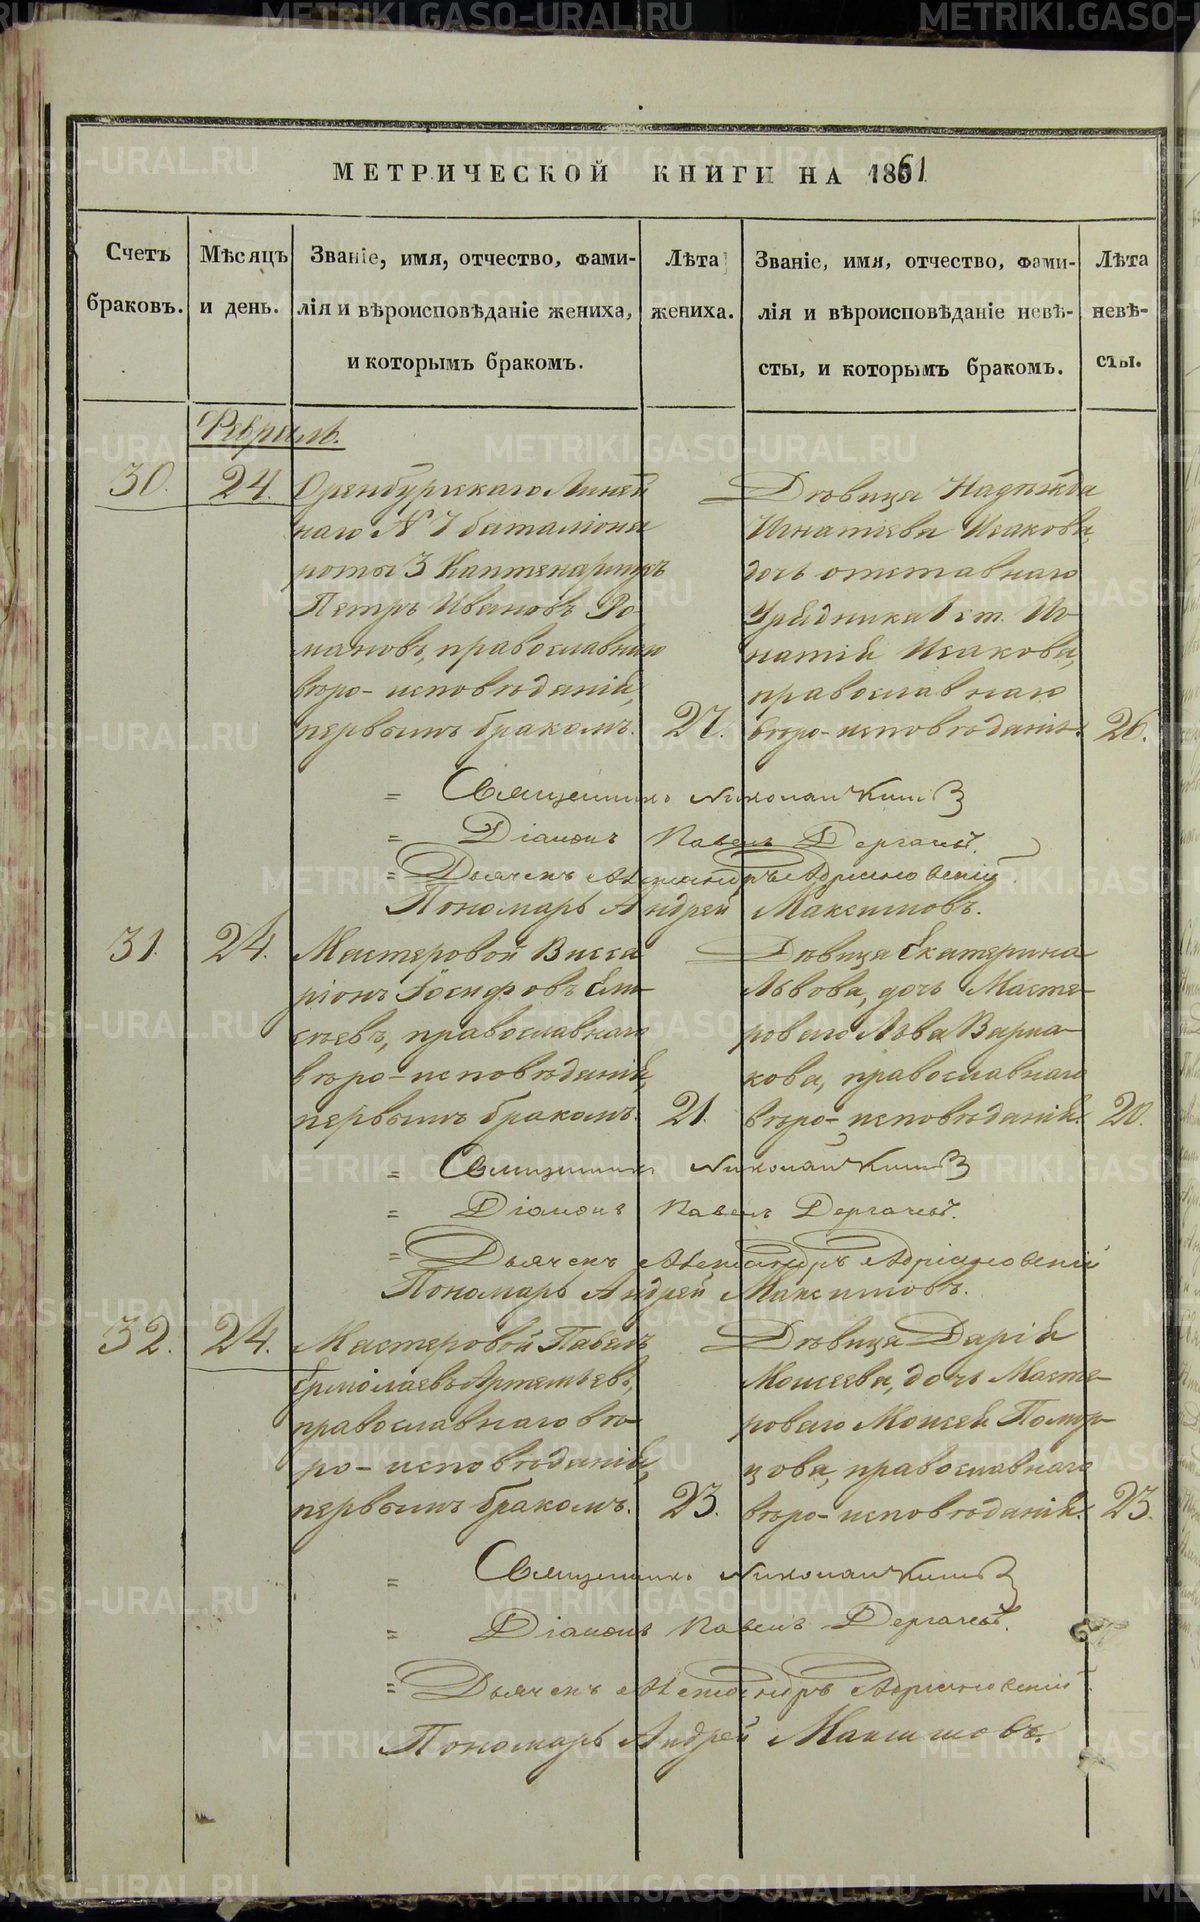 МЕТРИЧЕСКОЙ КНИГИ НА 1861
Счетъ браковъ.
Мѣсяцъ и день.
Званіе, имя, отчество, фами-
лія и вѣроисповѣданіе жениха,
и которымъ бракомъ.
Лѣта жениха.
Званіе, имя, отчество, фами-
лія и вѣроисповѣданіе невѣ-
сты, и которымъ бракомъ.
Лѣта невѣ-
сты.
Февраль.
30. 24.
Оренбургскаго Линей
наго № 7 баталіона
роты 3 Каптенармусъ
Петръ Ивановъ Ро-
мановъ, православнаго
вѣро-исповѣданія,
первымъ бракомъ. 27.
Дѣвица Надѣжда
Игнатьева Исакова,
дочь отставнаго
Урядника 1 ст. Иг-
натія Исакова,
православнаго
вѣро-исповѣданія. 26.
= Священникъ Николай
= Діаконъ Павелъ Дергачевъ.
= Дьячекъ Александръ Адріановскій
Пономарь Андрей Максимовъ.
31. 24.
Мастеровой Висса
ріонъ Іосифовъ Ели-
сѣевъ, православнаго
вѣро-исповѣданія,
первымъ бракомъ. 21.
Дѣвица Екатерина
Львова, дочь Масте-
роваго Льва Варна-
кова, православнаго
вѣро-исповѣданія. 20.
= Священникъ Николай
= Діаконъ Павелъ Дергачевъ.
= Дьячекъ Александръ Адріановскій
Пономарь Андрей Максимовъ.
32. 24.
Мастеровой Павелъ
Ермолаевъ Артемьевъ,
православнаго вѣ-
ро-исповѣданія,
первымъ бракомъ. 23.
Дѣвица Дарія
Моисеева, дочь Масте-
роваго Моисея
православнаго
вѣро-исповѣданія. 23.
= Священникъ Николай
= Діаконъ Павелъ Дергачевъ.
= Дьячекъ Александръ Адріановскій
Пономарь Андрей Максимовъ.
METRIKI.GASO-URAL.RU